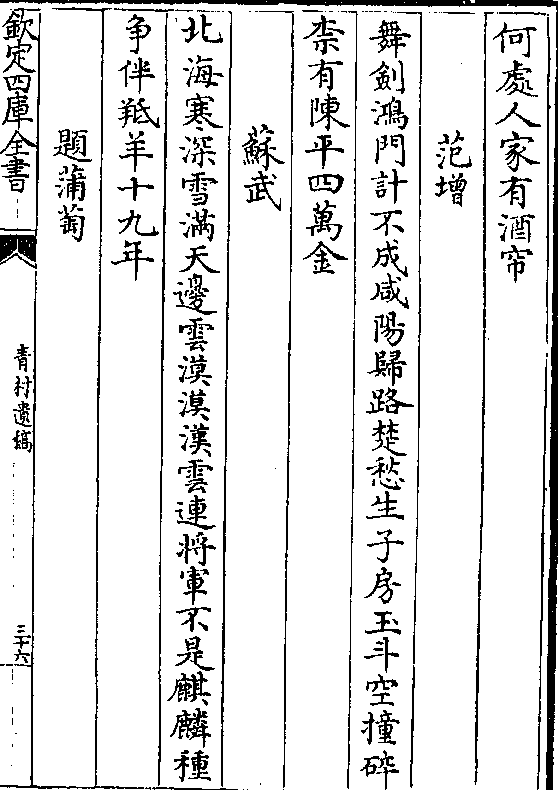 何處人家有酒帘
范增
舞劍鴻門計不成咸陽歸路楚愁生子房玉斗空撞碎
柰有陳平四萬金
蘇武
北海寒深雪滿天邊雲漠漠漢雲連將軍不是麒麟種
争伴羝羊十九年
題蒲萄
欽定四庫全書
青村遺稿
三十六